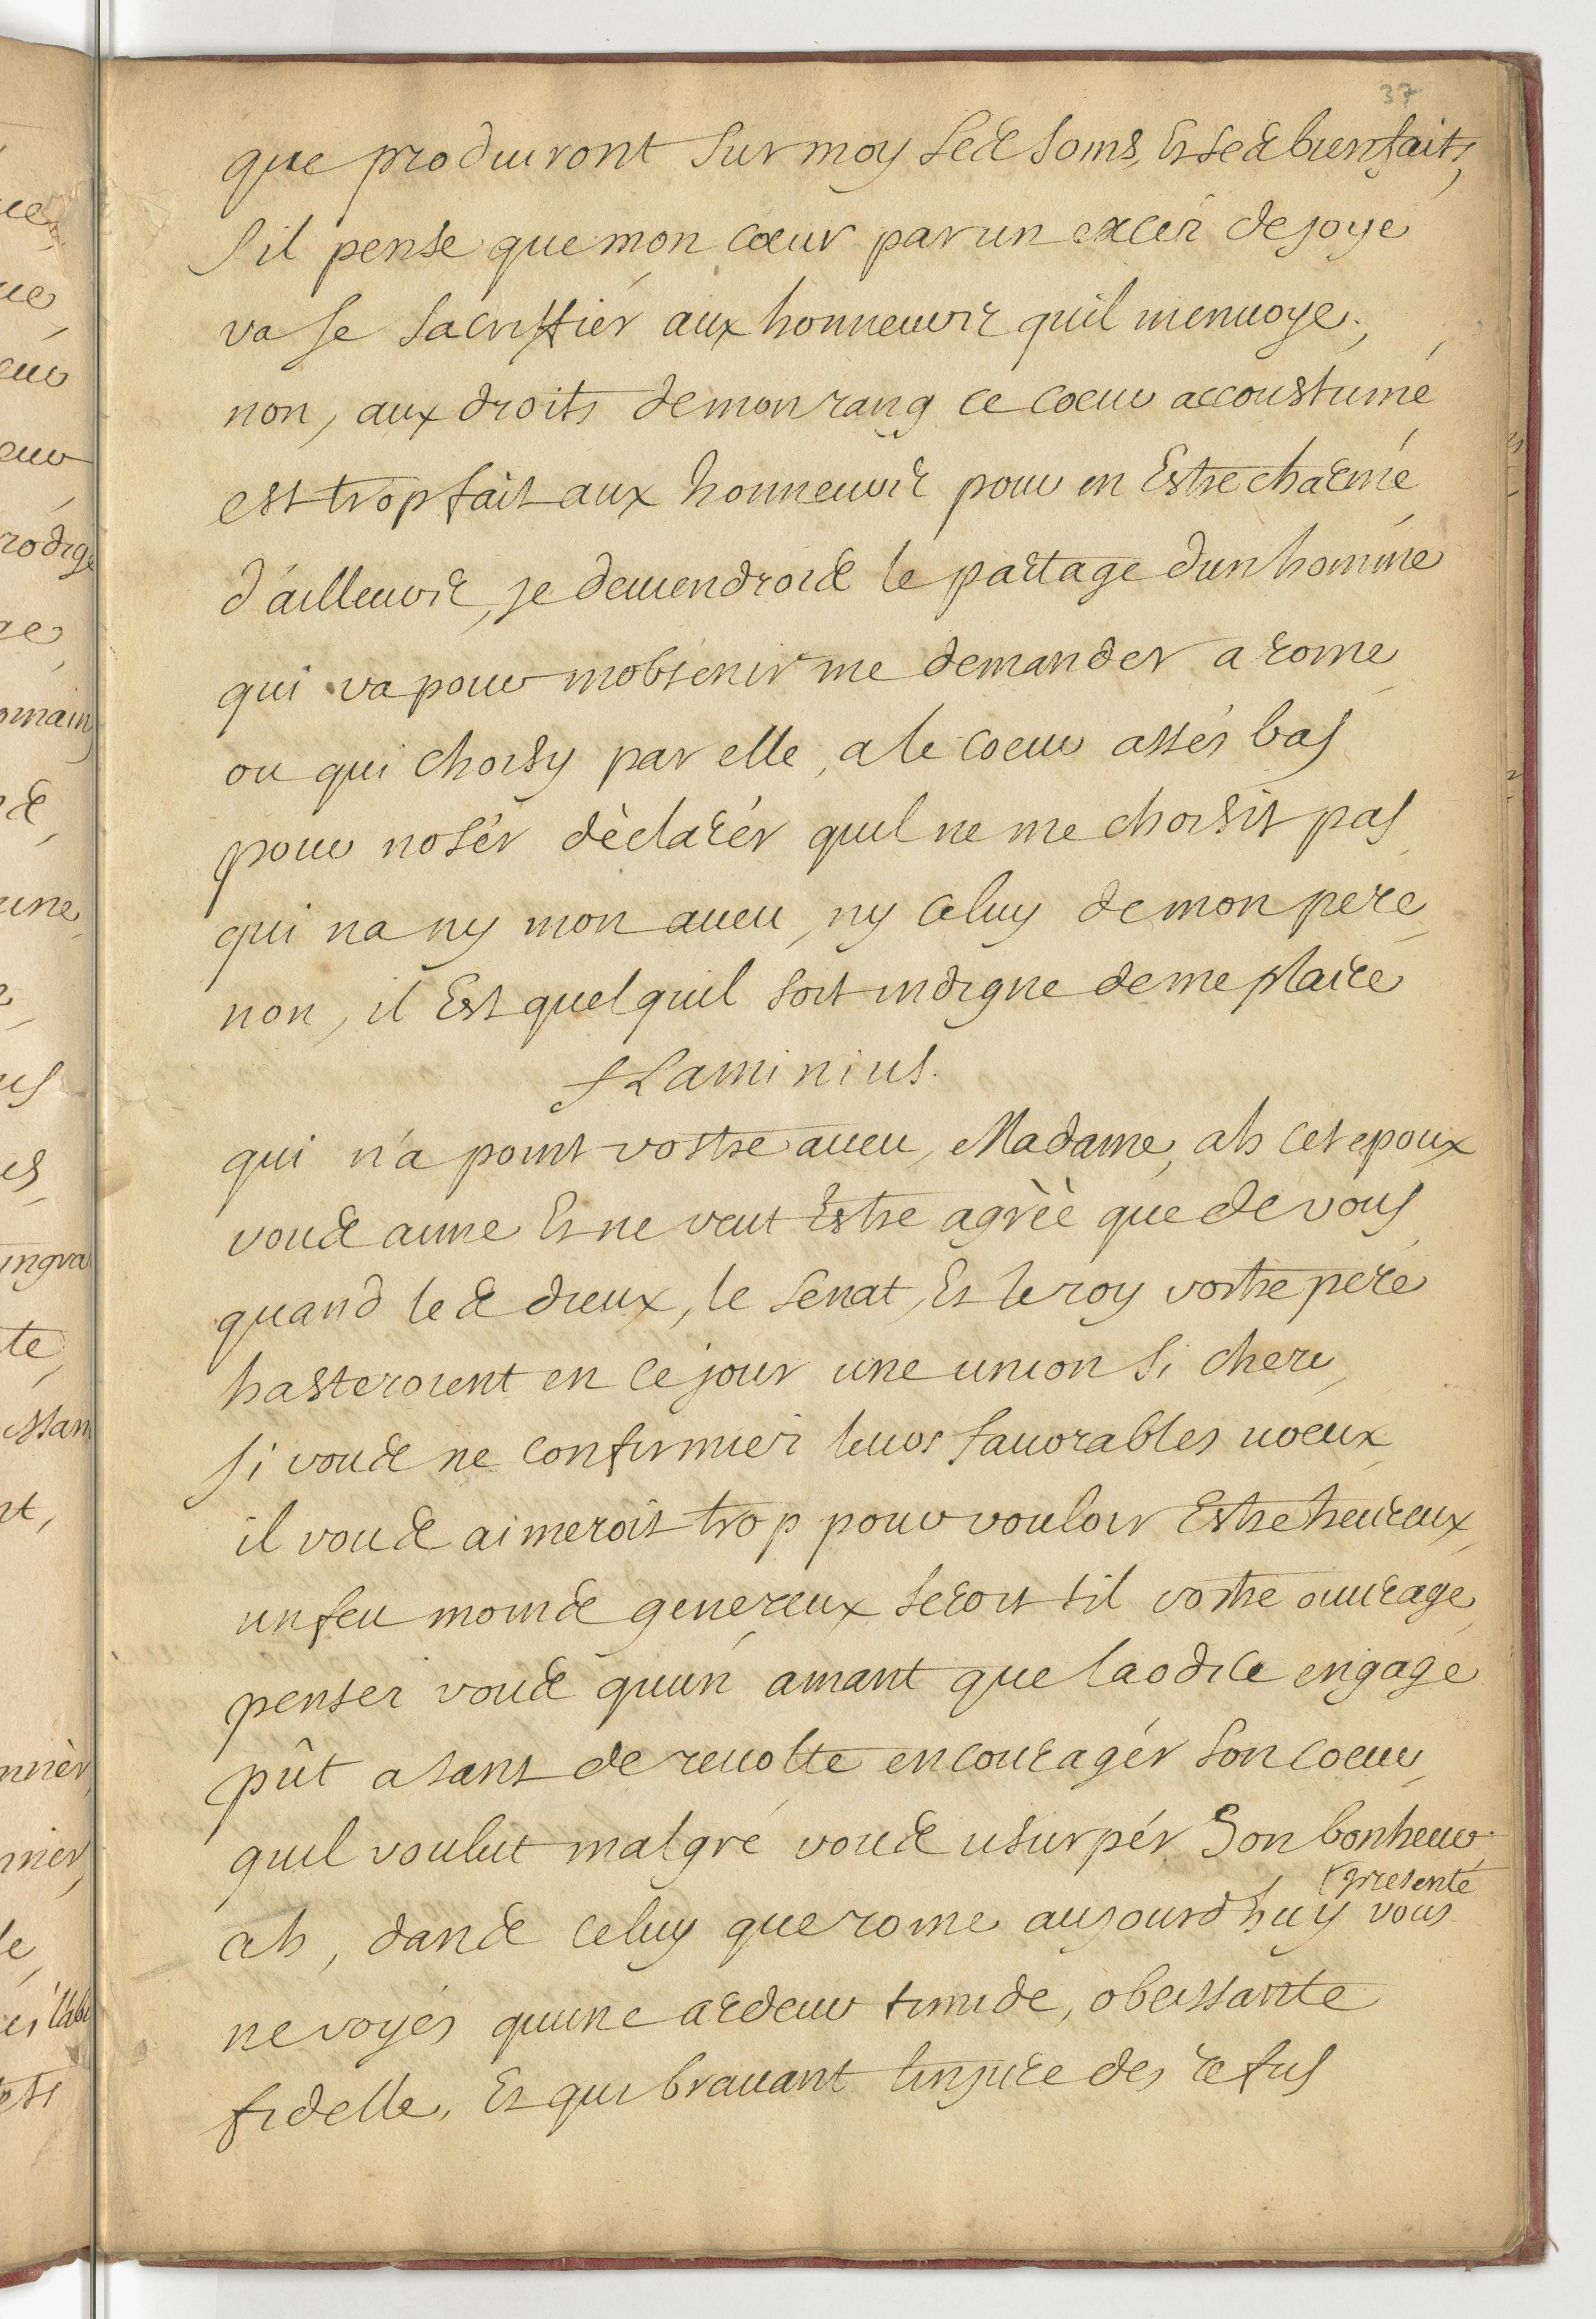 37
que produiront sur moy ses soins, et ses bienfaits,
s'il pense que mon cœur par un excès de joye
va se sacriffiér aux honneurs quil menuoye;
non, aux droits de mon rang ce coeur accoustumé
est trop fait aux honneurs pour en Estre charmé
d'ailleurs, je deuiendrois le partage dun homme
qui va pour mobtenir me demander a rome
ou qui choisy par elle, a le coeur assés bas
pour nosér dèclarér quil ne me choisit pas
qui na ny mon aueu, ny celuy de mon pere
non, il Est quel quil soit indigne de me plaire
flaminius.
qui n'a point vostre aueu, Madame, ah cet epoux
vous aime Et ne veut Estre agrèè que de vous
quand les dieux, le senat, Et le roy vostre pere
hasteroient en ce jour une union si chere,
si vous ne confirmiés leurs fauorables uoeux
il vous aimeroit trop pour vouloir Estre heureux,
un feu moins genereux seroit til vostre ouurage,
pensés vous qu'un amant que laodice engage
pût a tant de reuolte encouragér son coeur,
quil voulut malgré vous usurpér Son bonheur
(presente
ah, dans celuy que rome aujourdhuy vous
ne voyés quune ardeur timide, obeissante
fidelle, Et qui brauant linjure des refus